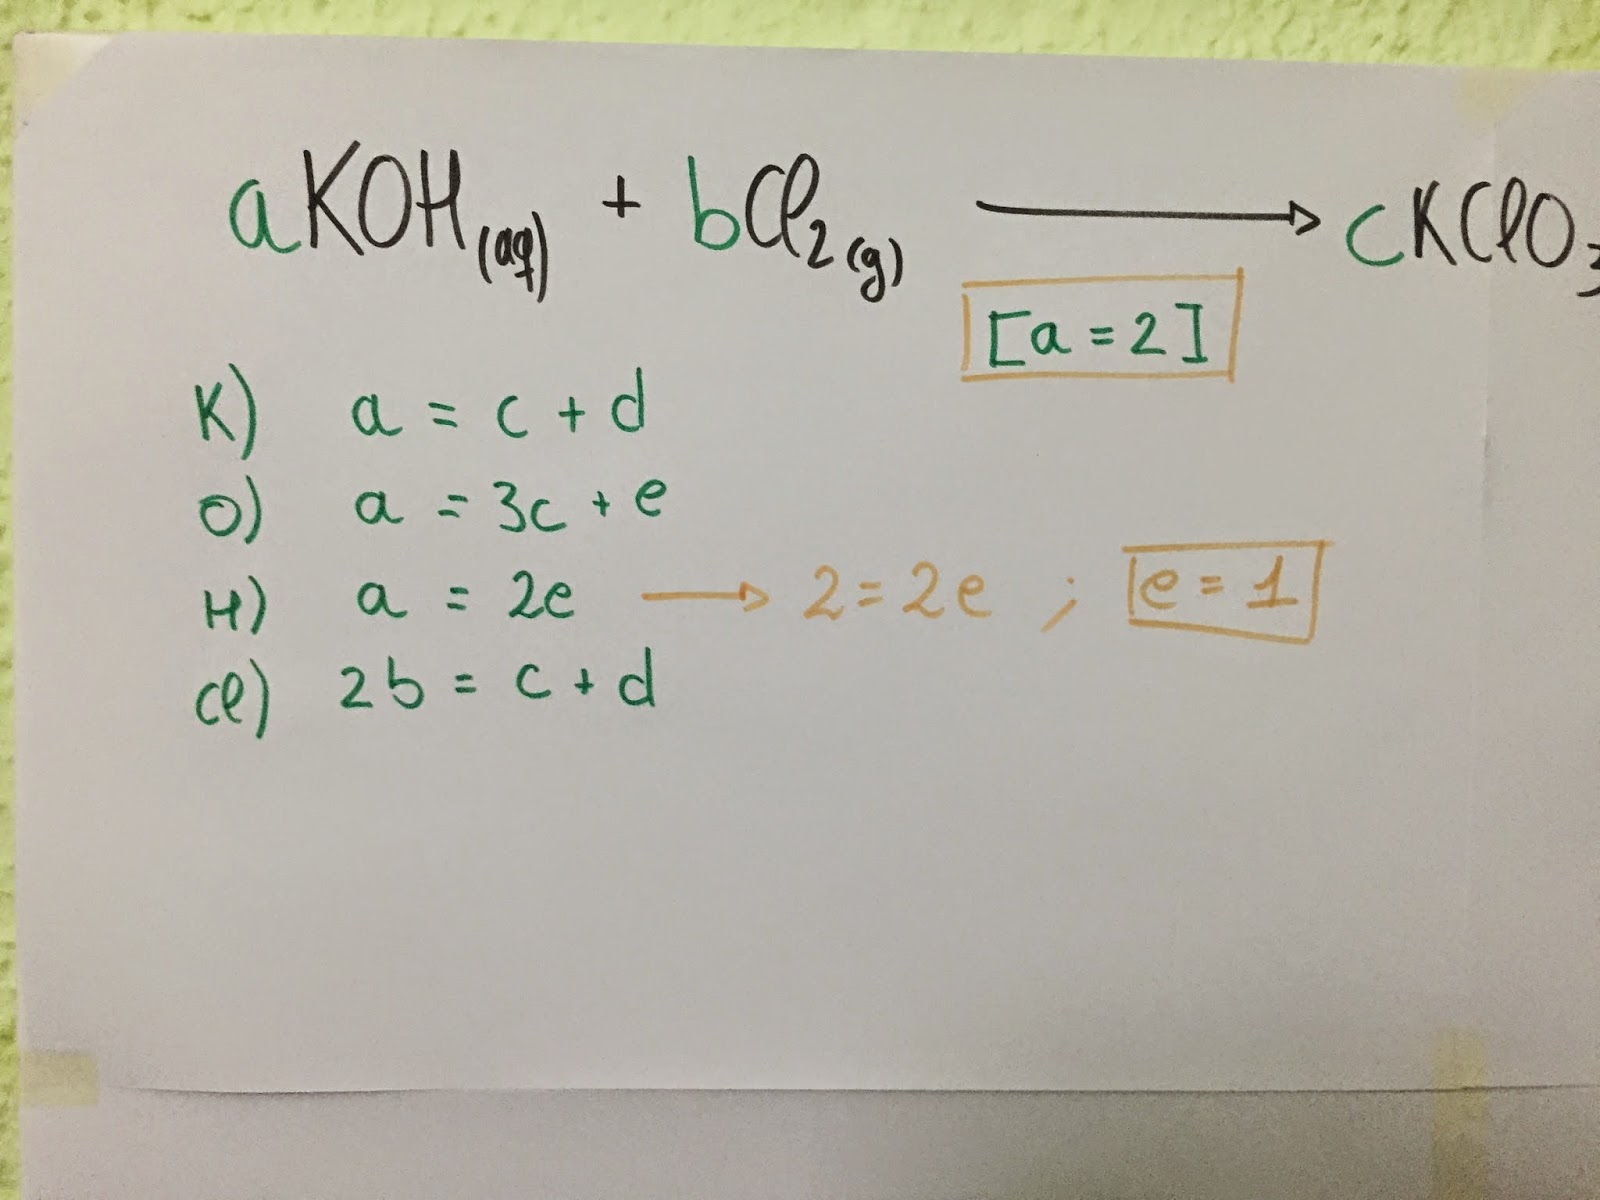 aKOH(aq) + bCl₂(g) ⟶ cKClO₃
[a = 2]
K) a = c + d
O) a = 3c + e
H) a = 2e → 2 = 2e ; e = 1
Cl) 2b = c + d